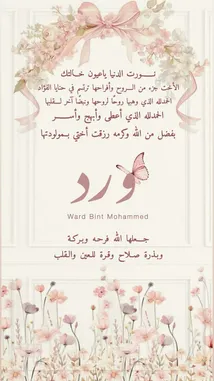 نـــورت الدنيا ياعيون خـــالتك
الأخت جزء من الـــروح وأفراحها ترتسم في حنايا الفؤاد
الحمدلله الذي وهبها روحًا لروحها ونبضًا آخر لـــقلبها
الحمدلله الذي أعطى وأبهج وأســـر
بفضل من الله وكرمه رزقت أختي بمولودتها
ورد
Ward Bint Mohammed
جـــعلها الله فرحه وبركـة
وبـذرة صـلاح وقـرة للعين والقلب